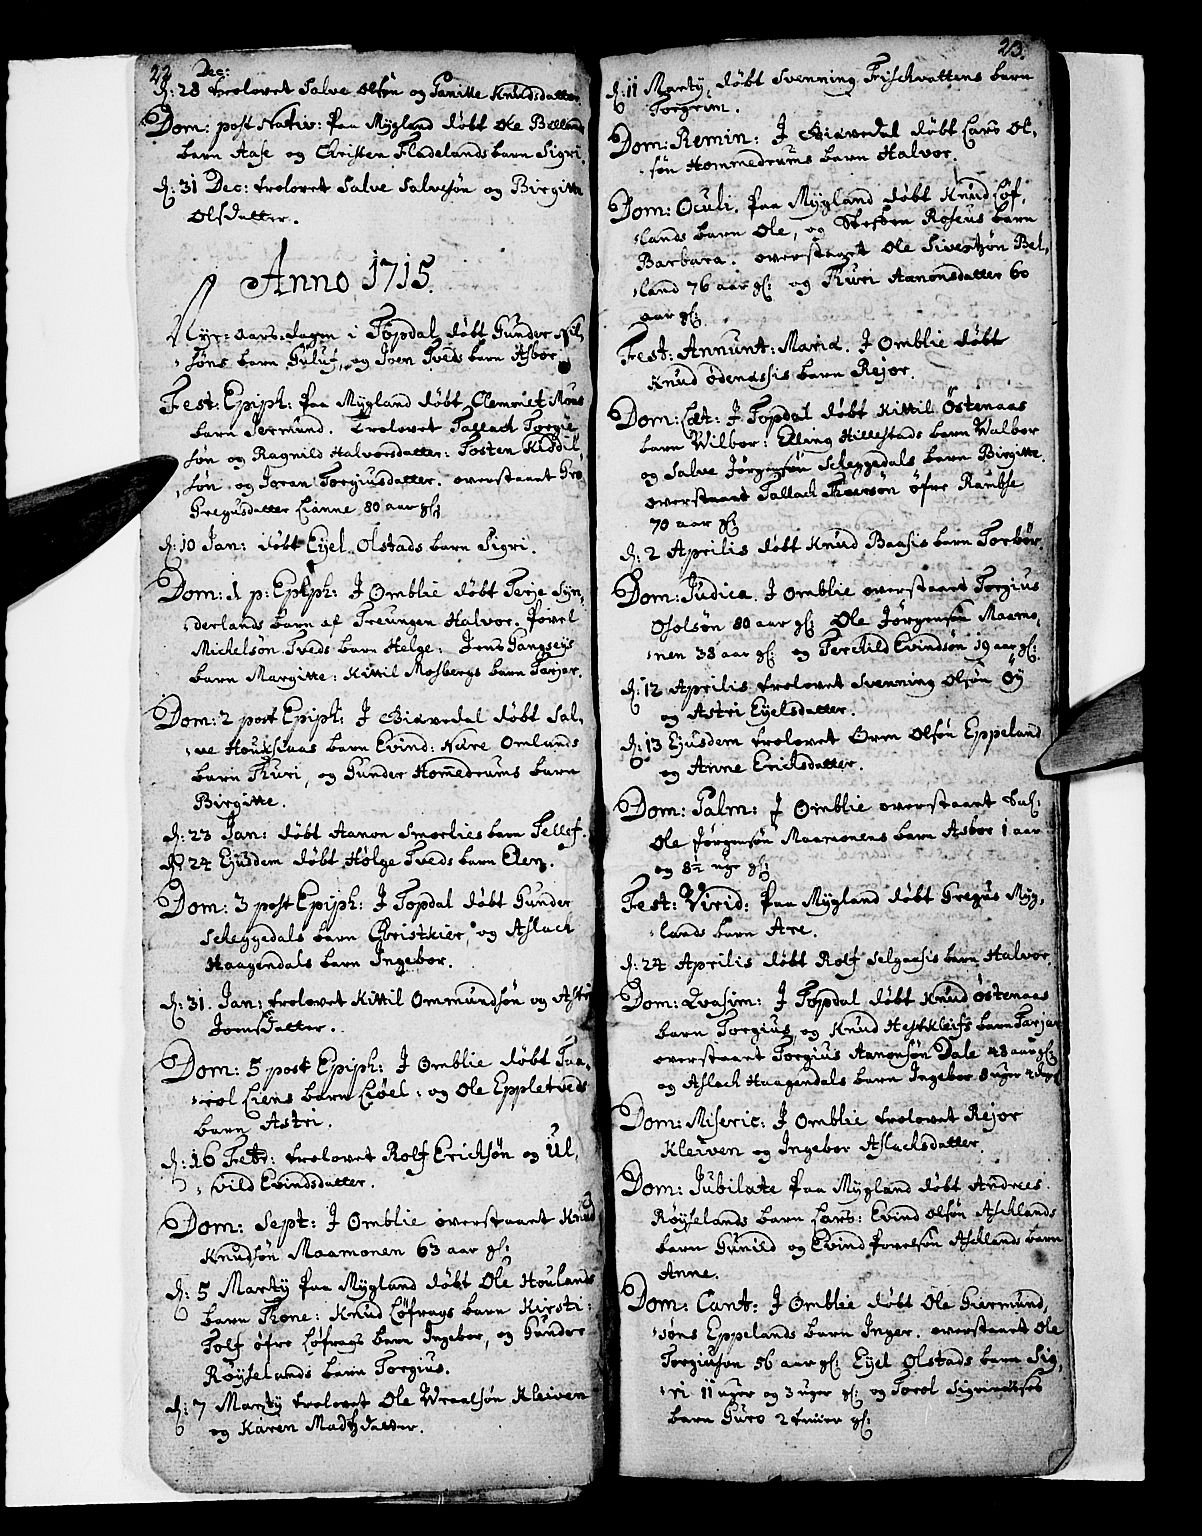 22 Dec:
d: 28 trolovet Salve Olsøn og Tanitte Knudsdatter
Dom: post Nativ: paa Mygland døbt Ole Bellands
barn Aase og Christen Fladelands barn Sigri.
d: 31 Dec: trolovet Salve Salvesøn og Birgitte
Olsdatter.
Anno 1715.
Nyr-aars-dagen i Topdal døbt Gunder Nil,
søns barn Guluf, og Iven Tveds barn Asbor
Fest: Epiph: paa Mygland døbt Clemmet
barn Germund. trolovet Tallach Torgie
søn og Ragnild Halvorsdatter: Tosten Kiddil
søn og Joran Torgiusdatter. overstaaet Gro
Gregusdatter Lianne 80 aar gl:
d: 10 Jan: døbt Eyel Olstads barn Sigri.
Dom: 1 p: Epiph: I Omblie døbt Terje Syn,
derlands barn af Treungen Halvor. Povel
Michelsøn Tveds barn Helge: Jens Gangseys
barn Margitte: Kittil Mosbergs barn Tarjer.
Dom: 2 post Epiph: I Giøvedal døbt Sal,
ve Houksaas barn Evind: Nure Omlands
barn Thuri, og Gunder Hommedrums barn
Birgitte.
d: 23 Jan: døbt Aanon Smorlies barn Tellef.
d: 24 Ejusdem døbt Hølge Tveds barn Elen.
Dom: 3 post Epiph: I Topdal døbt Gunder
Scheggedals barn Christkier, og Aslach
Haagendals barn Ingebor.
d: 31. Jan: trolovet Kittil Ommundsøn og Astri
Jomsdatter.
Dom: 5 post Epiph: I Omblie døbt Taa,
rol Liens barn Liøel: og Ole Eppletveds
barn Astri.
d: 16 Febr: trolovet Rolf Erichsøn og Ul,
vild Evindsdatter.
Dom: Sept: I Omblie overstaaet Knud
Knudsøn Maamonen 63 aar gl:
d: 5 Martij paa Mygland døbt Ole Houlands
barn Thone: Knud Løfrags barn Kirsti:
Tolf øfre Løfrags barn Ingebor, og Gunder
Røyselands barn Torgius.
d: 7 Martij trolovet Ole Wraalsøn Kleiven
og Karen Madtzdatter.
23.
d: 11 Martij, døbt Svenning Fischvattens barn
Torgrim.
Dom: Remin: I Giøvedal døbt Lars Ol,
søn Hommedrums barn Halvor.
Dom: Oculi. paa Mygland døbt Knud Løf,
lands barn Ole, og Steffen Roseus barn
Barbara. overstaaet Ole Sivertsøn Bel,
land 76 aar gl: og Thuri Aanonsdatter 60
aar gl:
Fest: Annunt: Mariæ. I Omblie døbt
Knud Ødenæssis barn Rejor.
Dom: Læt: I Topdal døbt Kittil Østenaas
barn Wilbor: Elling Hillestads barn Walbor
og Salve Jørgensøn Scheggedals barn Birgitte.
overstaaet Tallach Thorsøn øfre Ramse
70 aar gl:
d: 2 Aprilis døbt Knud Baasis barn Torbør.
Dom: Judica. I Omblie overstaaet Torgius
Osolsøn 80 aar gl: Ole Jørgensøn Maamo,
nen 38 aar gl: og Terchild Evindsøn 19 aar gl:
d: 12 Aprilis trolovet Svenning Olsøn Øy
og Astri Eyelsdatter.
d: 13 Ejusdem trolovet Orm Olsøn Eppeland
og Anne Erichsdatter.
Dom: Palm: I Omblie overstaaet Sal:
Ole Jørgensøn Maamonens barn Asbor 1 aar
og 8½ uge gl:
Fest: Virid: paa Mygland døbt Gregus Myg,
lands barn Are.
d: 24 Aprilis døbt Rolf Selgaasis barn Halvor.
Dom: Qvasim: I Topdal døbt Knud Østenaas
barn Torgius, og Knud Hestkleifs barn Tarjer
overstaaet Torgius Aanonsøn Dale 48 aar gl:
og Aslach Haagendals barn Ingebor 8 uger
Dom: Miseric: I Omblie trolovet Rejor
Kleiven og Ingebor Aslachsdatter.
Dom: Jubilate paa Mygland døbt Andrees
Røyselands barn Lars: Evind Olsøn Aschlands
barn Gunild og Evind Povelsøn Aschlands barn
Anne.
Dom: Cant: I Omblie døbt Ole Giermund,
søns Eppelands barn Inger. overstaaet Ole
Torgiusøn 56 aar gl: Eyel Olstads barn Sig,
ri 11 uger og 3 uger gl: og Torol
barn Guro 2 timer gl: